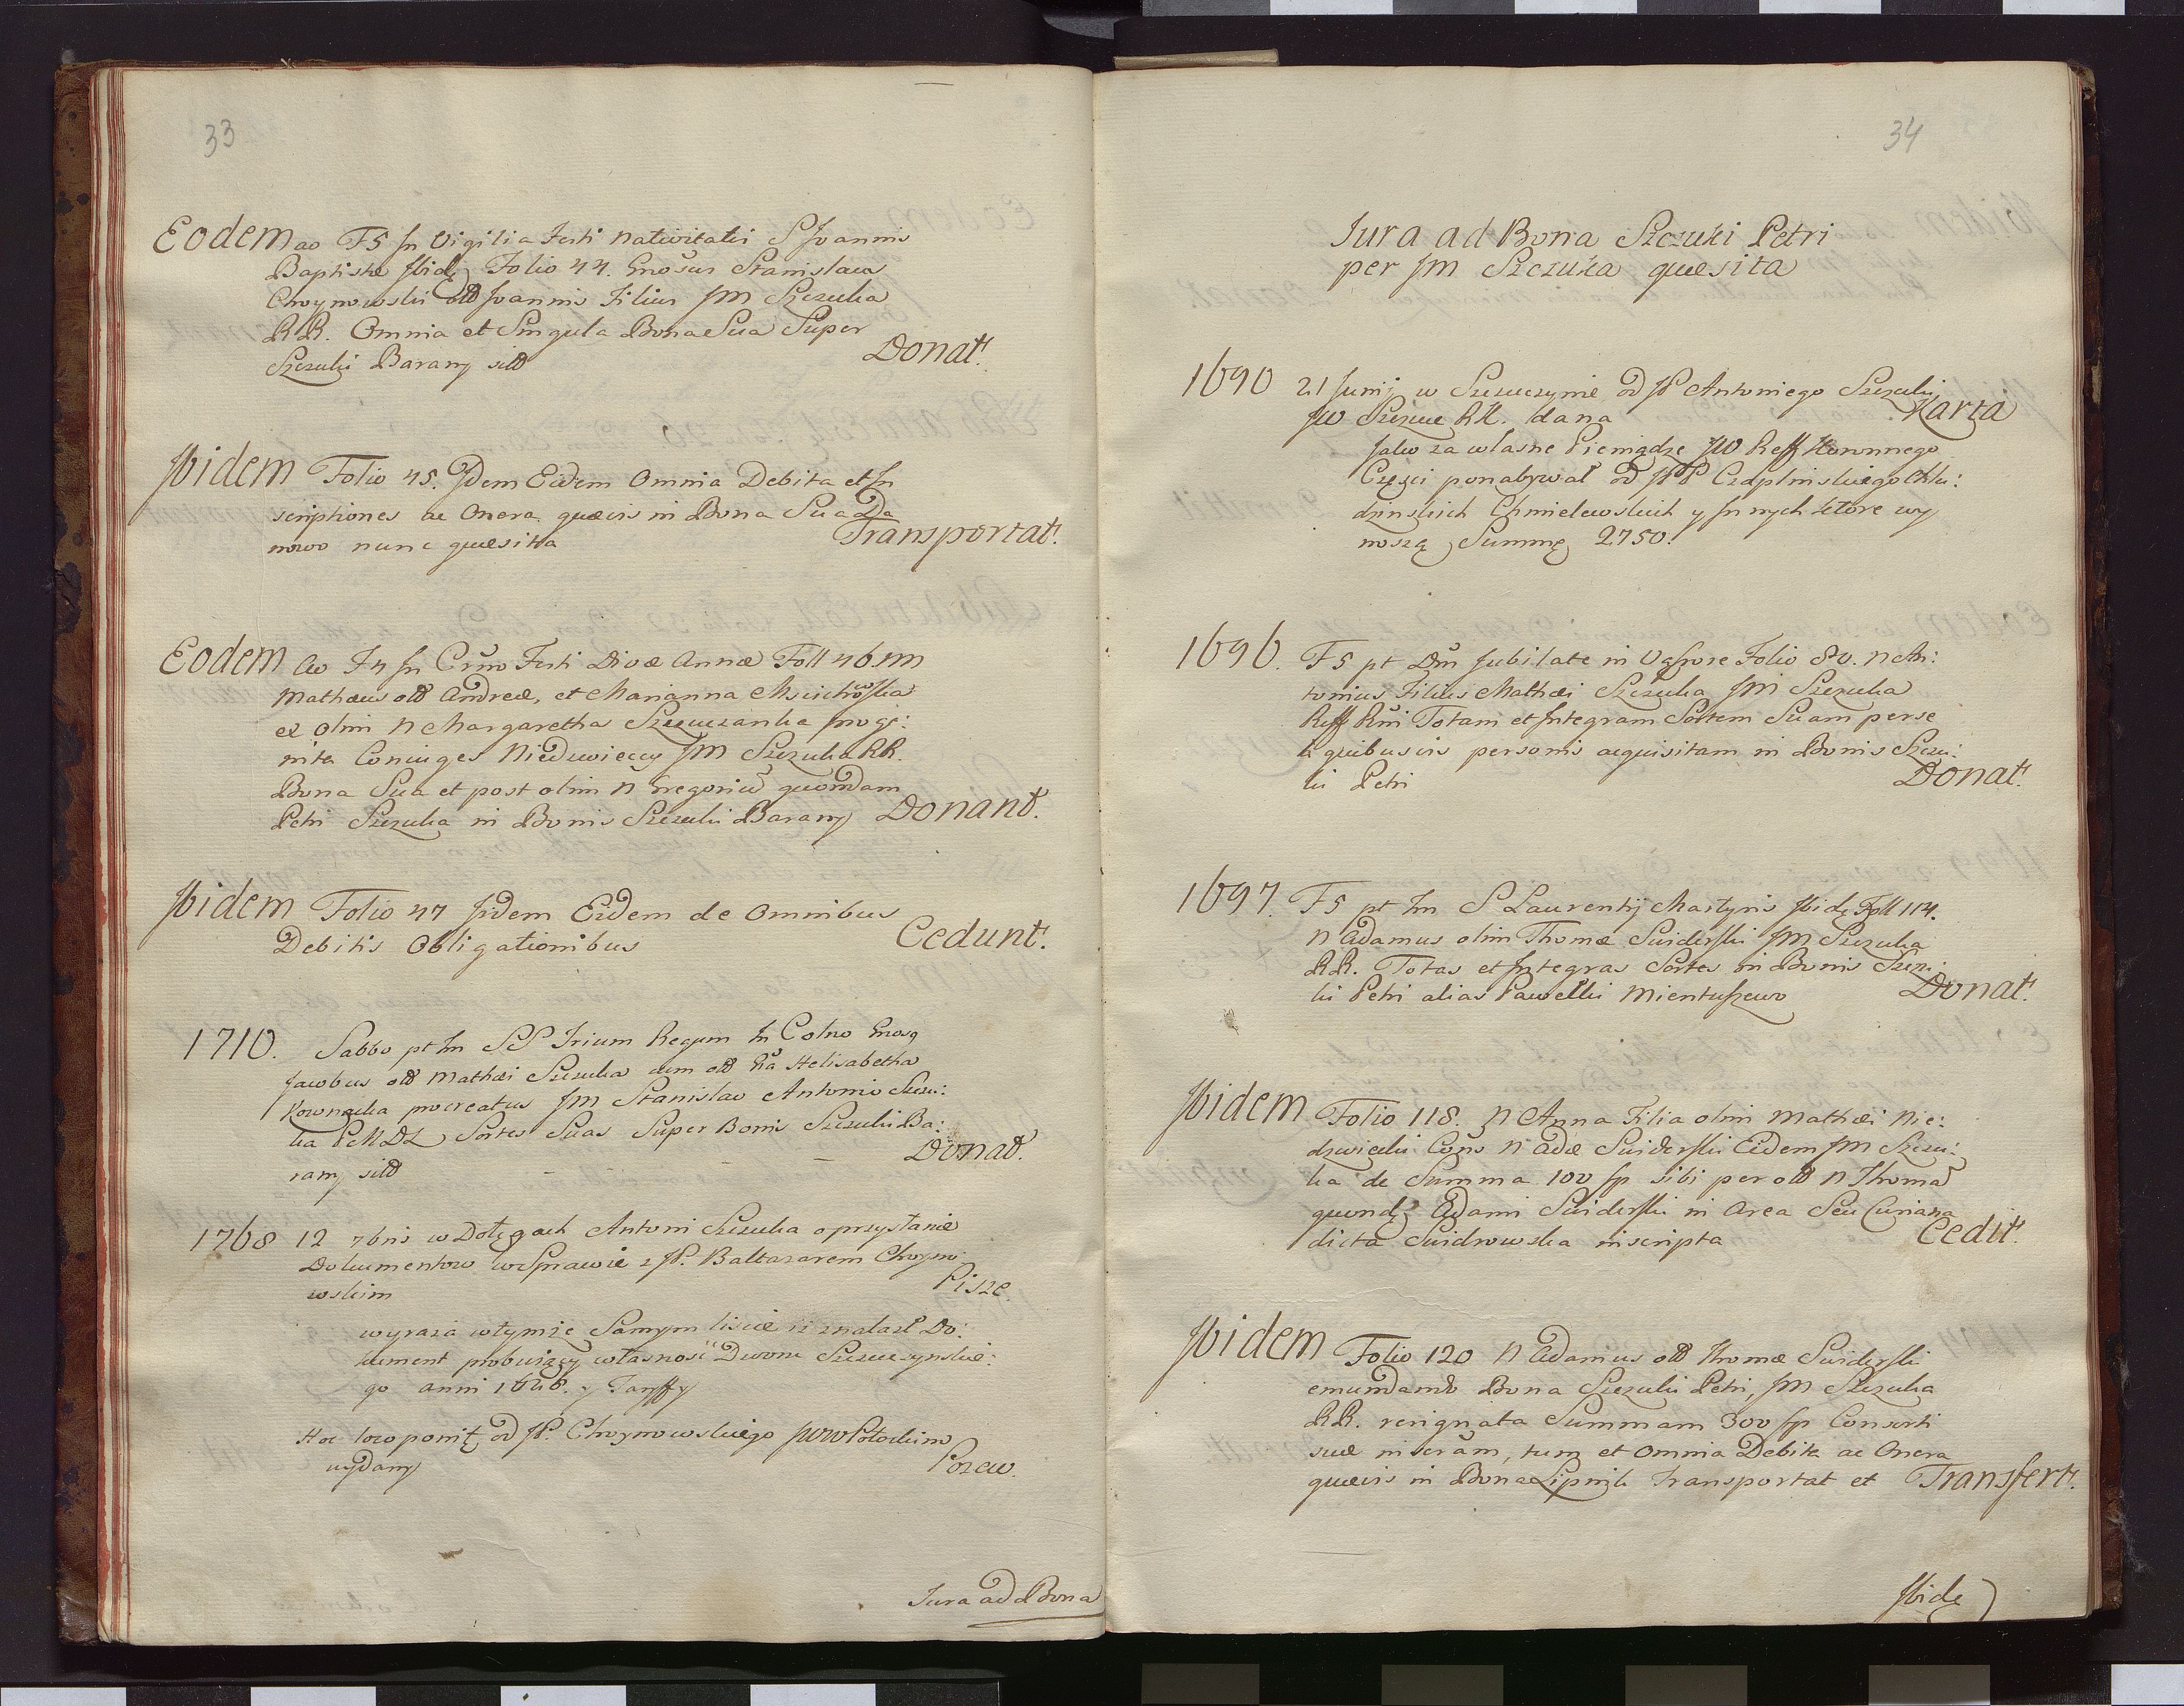 33
Eodem ao F5 in Vigilia Festi Nativitatis S Joannis
Baptistæ Ibidę Folio 44. Gnosus Stanislaus
Choynowski olim Joannis Filius JM Szczuka
RR. Omnia et Singula Bona Sua Super
Szczuki Barany sitt Donat.
Ibidem Folio 45. Idem Eidem Omnia Debita et In
scriptiones ac Onera quævis in Bona Sua Da
nowo nunc quæsita Transportat.
Eodem Ao F4 in Crõ Festi Divæ Annæ Foll 46 NN
Mathæus olim Andreæ, et Marianna Mscichowska
ex olim N Margaretha Szczuczanka proge:
nita Coniuges Niedzwieccy JM Szczuka RR.
Bona Sua et post olim N Gregoriũ quondam
Petri Szczuka in Bonis Szczuki Barany Donant.
Ibidem Folio 47 Iidem Eidem de Omnibus
Debitis Obligationibus Cedunt.
1710. Sabbo pt In SS Trium Regum In Colno Gnosq
Jacobus olim Mathæi Szczuka cum olim Gña Helisabetha
Kownacka procreatus JM Stanislao Antonio Szczu:
ka PcMDL Sortes Suas Super Bonis Szczuki Ba:
rany sitt Donat.
1768 12 7bris w Dołęgach Antoni Szczuka o przysłanie
Dokumentow w Sprawie z JP. Baltazarem Choyno
wskim Pisze.
wyraża w tymże Samym liscie iż znalazł Do:
kument probuiący własnosć Dworu Szczuczynskie:
go anni 1648. y Taryffy
Hoc loco ponitę od JP. Choynowskiego JWW Potockim
wydany Pozew.
Jura ad Bona
34
Jura ad Bona Szczuki Petri
per JM Szczuka quæsita
1690 21 Junij w Szczuczynie od JP Antoniego Szczuki
JW Szczuce RK. dana Karta
Jako za własne Pieniądze JW Reff Koronnego
Częsci ponabywał od JPP Czaplinskiego Chlu:
dzinskich Chmielewskich y Innych ktore wy
noszą Summę 2750.
1696. F5 pt Dm̃ Jubilate in Vąsosze Folio 80. N An:
tonius Filius Mathæi Szczuka JM Szczuka
Reff Rñi Totam et Integram Sortem Suam per se
a quibusvis personis acquisitam in Bonis Szczu:
ki Petri Donat.
1697. F5 pt In S Laurentij Martyris Ibidę Foll 114.
N Adamus olim Thomæ Swiderski JM Szczuka
RR. Totas et Integras Sortes in Bonis Szczu:
ki Petri alias Pawełki Mientuszewo Donat.
Ibidem Folio 118. N Anna Filia olim Mathæi Nie:
dzwiedzki Cons N Adæ Swiderski Eidem JM Szczu:
ka de Summa 100 fp sibi per olim N Thomã
quondę Adami Swiderski in Area Seu Curiana
dicta Swidrowska inscripta Cedit.
Ibidem Folio 120 N Adamus olim Thomæ Swiderski
emundando Bona Szczuki Petri, JM Szczuka
RR. resignata Summam 300 fp Consorti
suæ inscrãm, tum et Omnia Debita ac Onera
quævis in Bona Lipniki Transportat et Transfert.
Ibidę